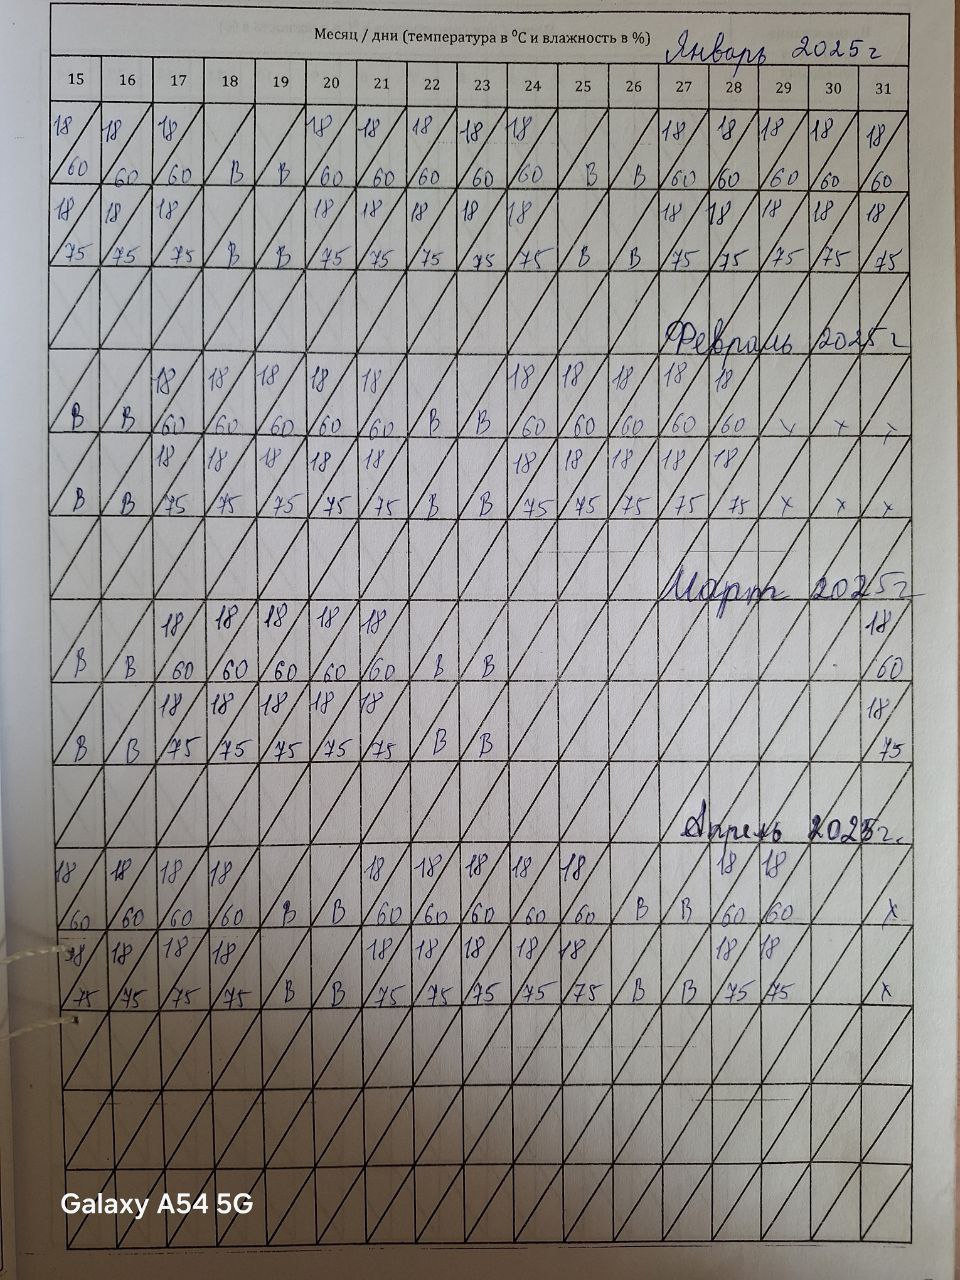 Месяц / дни (температура в °С и влажность в %) Январь 2025г
15 16 17 18 19 20 21 22 23 24 25 26 27 28 29 30 31
18 18 18 18 18 18 18 18 18 18 18 18 18
60 60 60 В В 60 60 60 60 60 В В 60 60 60 60 60
18 18 18 18 18 18 18 18 18 18 18 18 18
75 75 75 В В 75 75 75 75 75 В В 75 75 75 75 75
Февраль 2025г
18 18 18 18 18 18 18 18 18 18
В В 60 60 60 60 60 В В 60 60 60 60 60 х х х
18 18 18 18 18 18 18 18 18 18
В В 75 75 75 75 75 В В 75 75 75 75 75 х х х
Март 2025г
18 18 18 18 18 18
В В 60 60 60 60 60 В В 60
18 18 18 18 18 18
В В 75 75 75 75 75 В В 75
Апрель 2025г.
18 18 18 18 18 18 18 18 18 18 18
60 60 60 60 В В 60 60 60 60 60 В В 60 60 х
18 18 18 18 18 18 18 18 18 18 18
75 75 75 75 В В 75 75 75 75 75 В В 75 75 х
Galaxy A54 5G